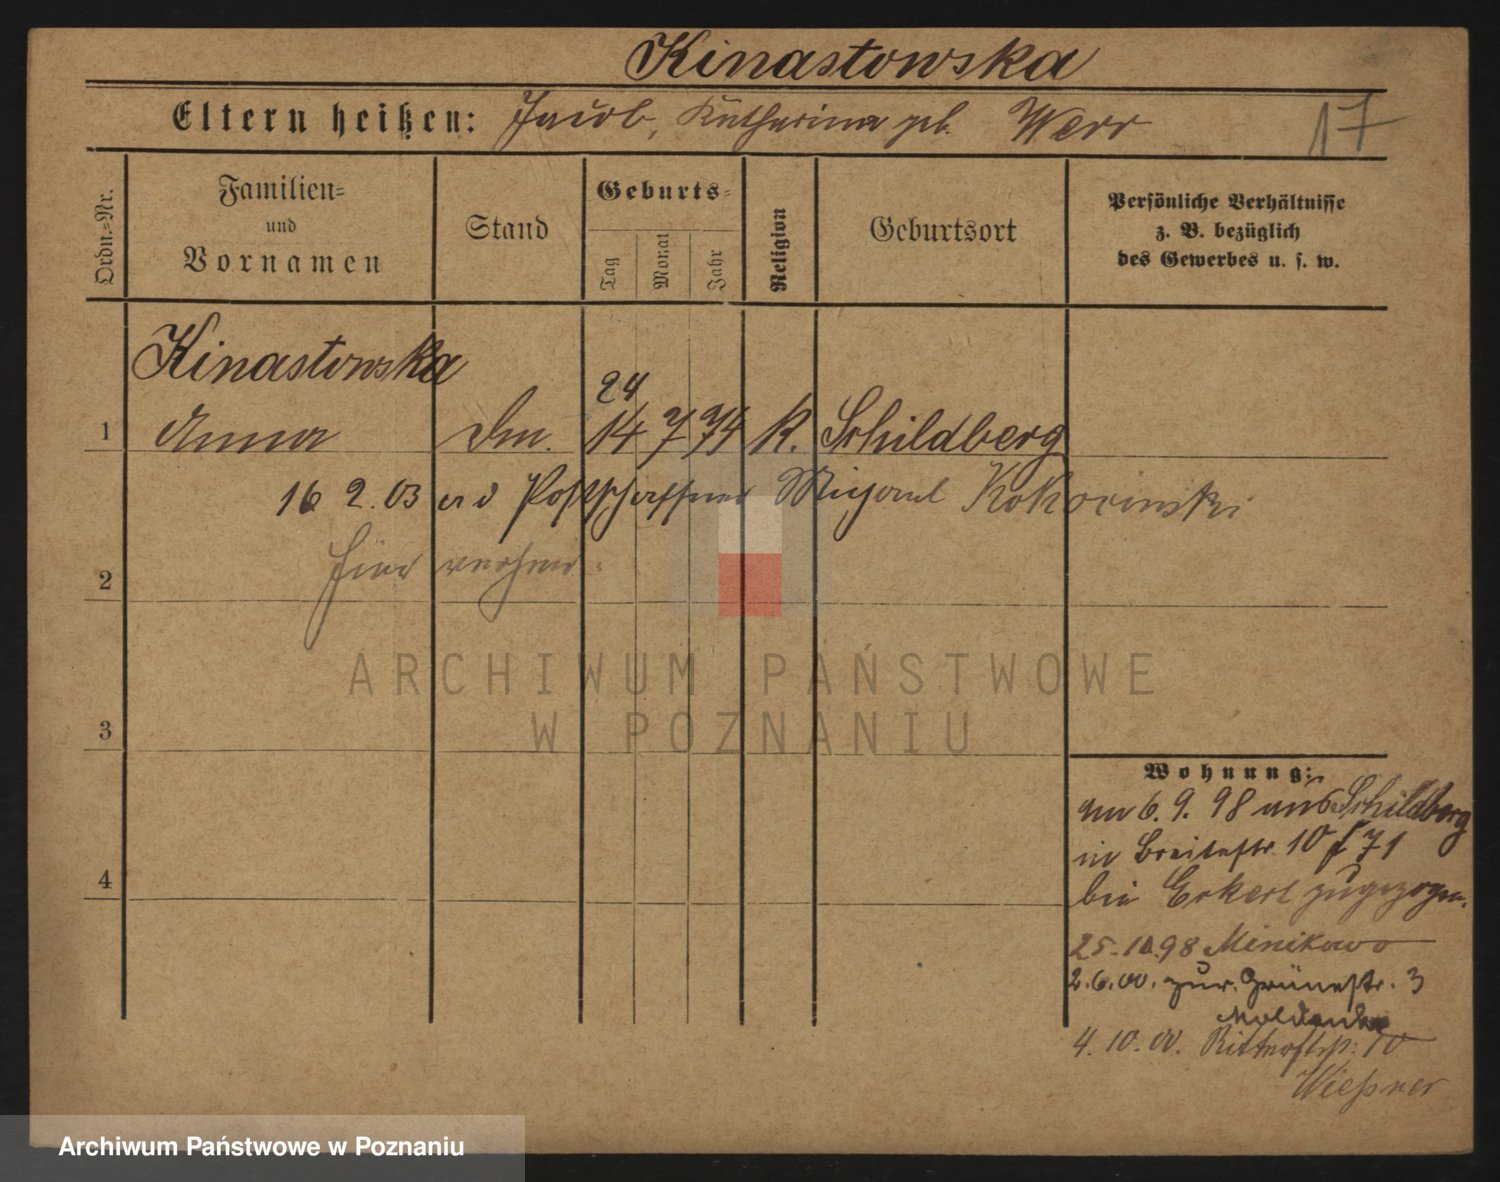 Kinastowska
Eltern heißen: Jacob, Katharina geb. Werr
17
Ordn.=Nr.
Familien=
und
Vornamen
Stand
Geburts=
Tag
Monat
Jahr
Religion
Geburtsort
Persönliche Verhältnisse
z. B. bezüglich
des Gewerbes u. s. w.
Kinastowska
24
1 Anna 14 7 74 K. Schildberg
16 2. 03 Postschaffner Kokocinski
hier verh
2
3
4
Wohnung:
am 6. 9. 98 aus Schildberg
in Breitestr. 10 f 71
bei Eckert zugezogen.
25.10.98 Minikowo
2.6.00. zur. Grünestr. 3
4. 10. 00. Ritterstr. 10
Wießner
ARCHIWUM PAŃSTWOWE
W POZNANIU
Archiwum Państwowe w Poznaniu